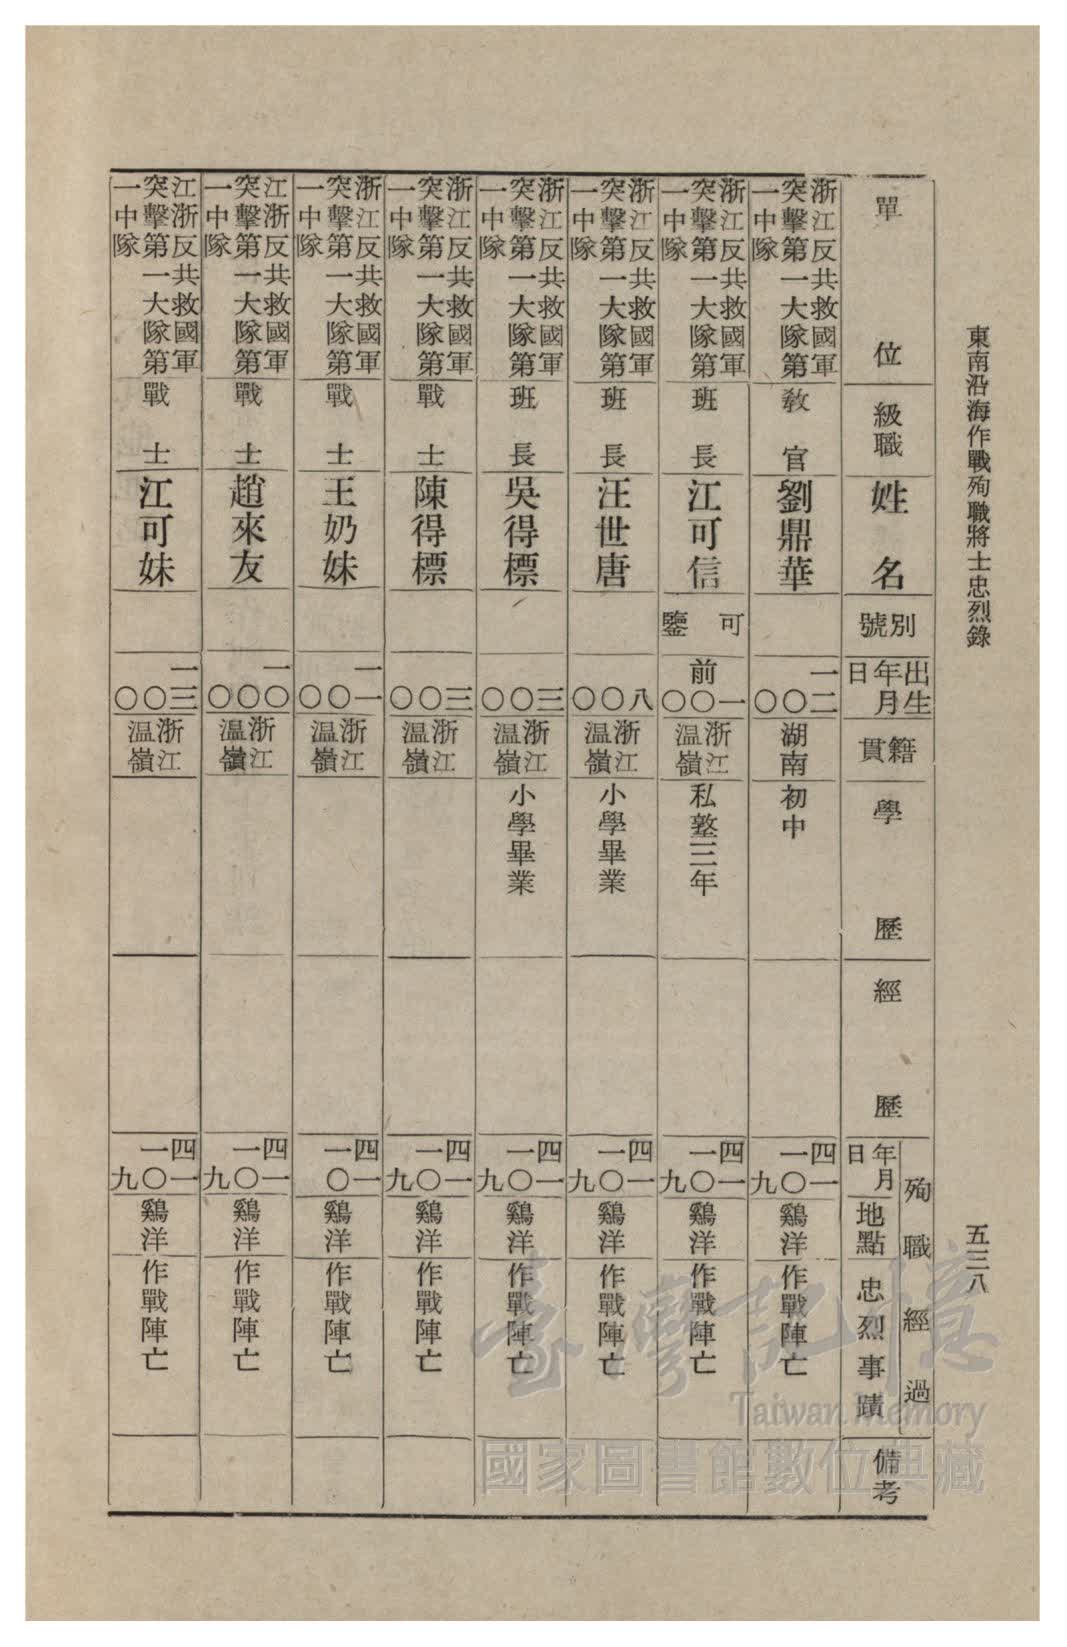 東南沿海作戰殉職將士忠烈錄
五三八
單位
級職
姓名
別號
出生年月日
籍貫
學歷
經歷
殉職經過
年月日
地點
忠烈事蹟
備考
浙江反共救國軍
突擊第一大隊第
一中隊
教官
劉鼎華
一二
〇〇
湖南
初中
四一
一〇
九
鷄洋
作戰陣亡
浙江反共救國軍
突擊第一大隊第
一中隊
班長
江可信
可鑒
前一
〇
〇
浙江
温嶺
私塾三年
四一
一〇
九
鷄洋
作戰陣亡
浙江反共救國軍
突擊第一大隊第
一中隊
班長
汪世唐
八
〇
〇
浙江
温嶺
小學畢業
四一
一〇
九
鷄洋
作戰陣亡
浙江反共救國軍
突擊第一大隊第
一中隊
班長
吳得標
三
〇
〇
浙江
温嶺
小學畢業
四一
一〇
九
鷄洋
作戰陣亡
浙江反共救國軍
突擊第一大隊第
一中隊
戰士
陳得標
三
〇
〇
浙江
温嶺
四一
一〇
九
鷄洋
作戰陣亡
浙江反共救國軍
突擊第一大隊第
一中隊
戰士
王奶妹
一一
〇
〇
浙江
温嶺
四一
一〇
鷄洋
作戰陣亡
江浙反共救國軍
突擊第一大隊第
一中隊
戰士
趙來友
一〇
〇
〇
浙江
温嶺
四一
一〇
九
鷄洋
作戰陣亡
江浙反共救國軍
突擊第一大隊第
一中隊
戰士
江可妹
一三
〇
〇
浙江
温嶺
四一
一〇
九
鷄洋
作戰陣亡
臺灣記憶
Taiwan Memory
國家圖書館數位典藏